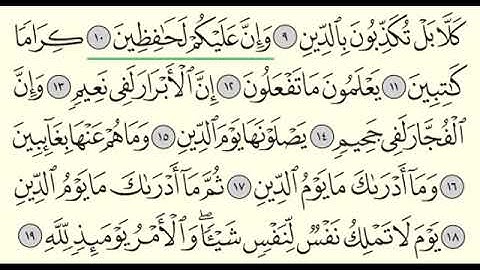 كَلَّا بَلْ تُكَذِّبُونَ بِٱلدِّينِ ٩ وَإِنَّ عَلَيْكُمْ لَحَٰفِظِينَ ١٠ كِرَامًا
كَٰتِبِينَ ١١ يَعْلَمُونَ مَا تَفْعَلُونَ ١٢ إِنَّ ٱلْأَبْرَارَ لَفِى نَعِيمٍ ١٣ وَإِنَّ
ٱلْفُجَّارَ لَفِى جَحِيمٍ ١٤ يَصْلَوْنَهَا يَوْمَ ٱلدِّينِ ١٥ وَمَا هُمْ عَنْهَا بِغَآئِبِينَ
١٦ وَمَآ أَدْرَىٰكَ مَا يَوْمُ ٱلدِّينِ ١٧ ثُمَّ مَآ أَدْرَىٰكَ مَا يَوْمُ ٱلدِّينِ
١٨ يَوْمَ لَا تَمْلِكُ نَفْسٌ لِّنَفْسٍ شَيْـًٔا ۖ وَٱلْأَمْرُ يَوْمَئِذٍ لِّلَّهِ ١٩